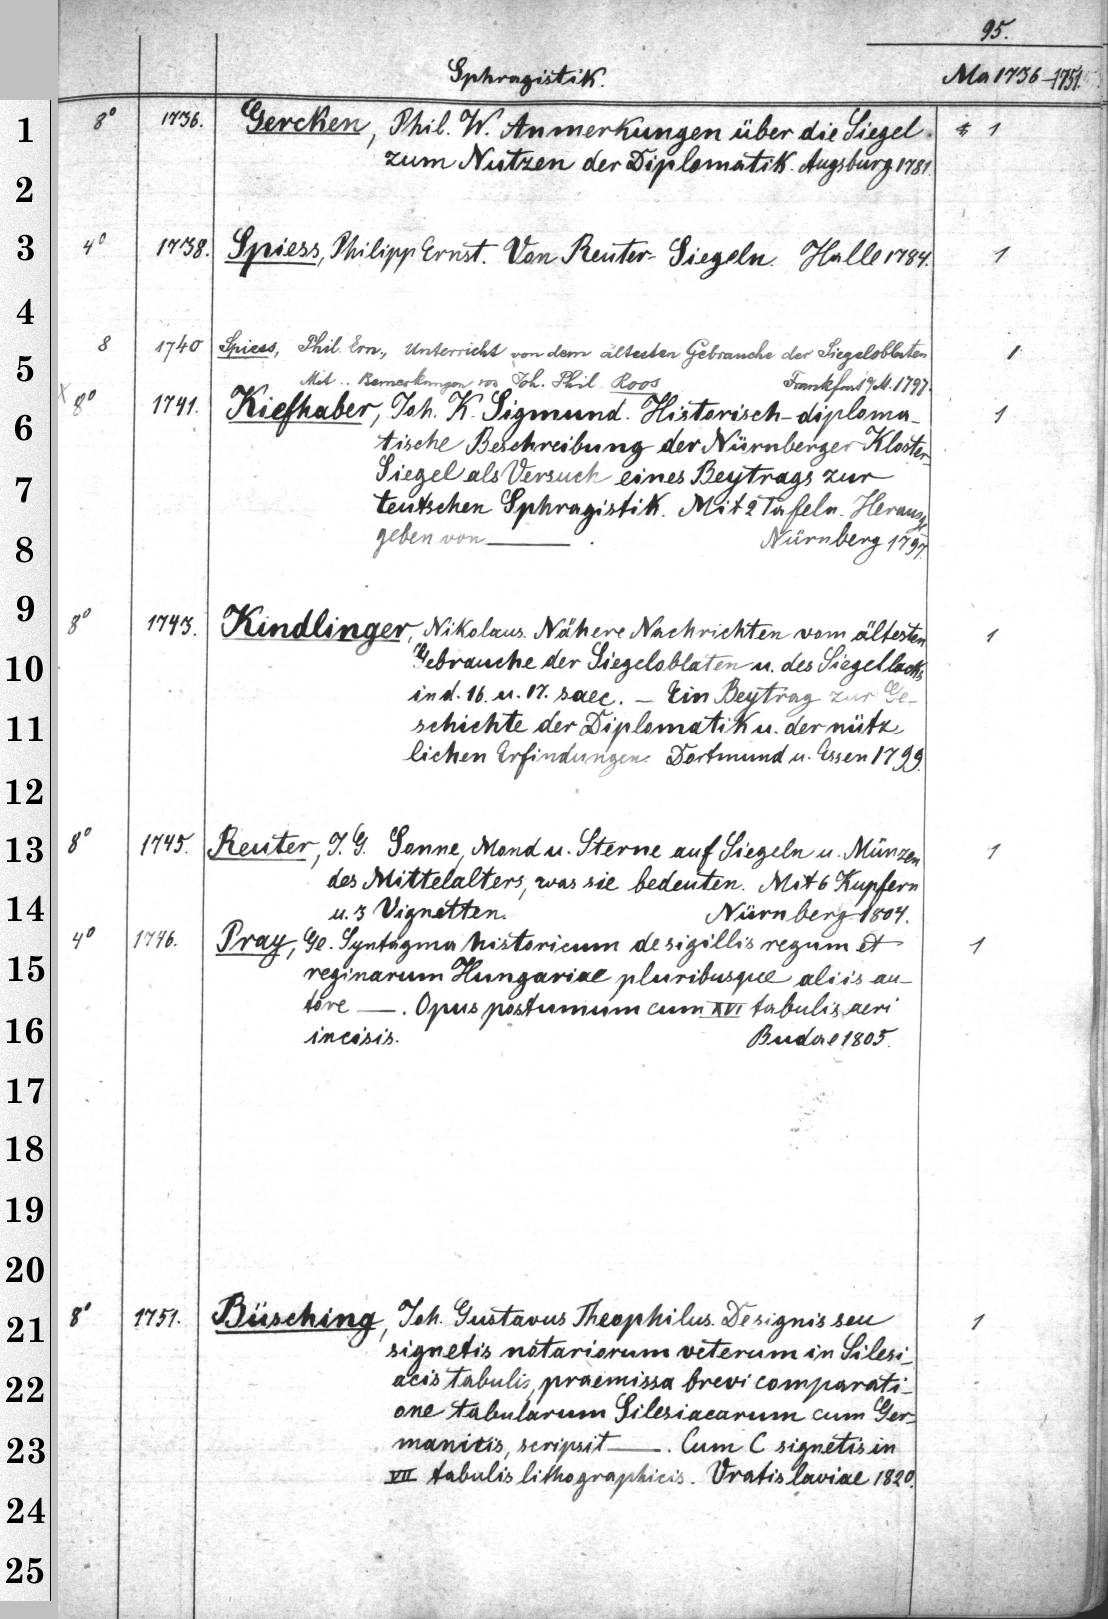 95.
Sphragistik. Ma 1736-1751.
1 8° 1736. Gercken, Phil. W. Anmerkungen über die Siegel 1
zum Nutzen der Diplomatik. Augsburg 1781.
2
3 4° 1738. Spiess, Philipp Ernst. Von Reuter-Siegeln. Halle 1784. 1
4
8 1740 Spiess, Phil. Ern., Unterricht von dem ältesten Gebrauche der Siegeloblaten 1
5 Mit .. Bemerkungen von Joh. Phil. Roos Frankfurt a/M. 1797.
x 8° 1741. Kiefhaber, Joh. K. Sigmund. Historisch-diploma- 1
6 tische Beschreibung der Nürnberger Kloster-
Siegel als Versuch eines Beytrags zur
7 teutschen Sphragistik. Mit 2 Tafeln. Herausge
8 geben von ———. Nürnberg 1797.
9 8° 1743. Kindlinger, Nikolaus. Nähere Nachrichten vom ältesten 1
10 Gebrauche der Siegeloblaten u. des Siegellacks
in d. 16. u. 17. saec. — Ein Beytrag zur Ge-
11 schichte der Diplomatik u. der nütz
lichen Erfindungen. Dortmund u. Essen 1799.
12
13 8° 1745. Reuter, J. G. Sonne, Mond u. Sterne auf Siegeln u. Münzen 1
des Mittelalters, was sie bedeuten. Mit 6 Kupfern
14 u. 3 Vignetten. Nürnberg 1804.
4° 1746. Pray, Ge. Syntagma historicum de sigillis regum et 1
15 reginarum Hungariae pluribusque aliis au-
tore ——. Opus postumum cum XVI tabulis aeri
16 incisis. Budae 1805.
17
18
19
20
21 8° 1751. Büsching, Joh. Gustavus Theophilus. De signis seu 1
signetis notariorum veterum in Silesi-
22 acis tabulis, praemissa brevi comparati-
one tabularum Silesiacarum cum Ger-
23 manicis, scripsit ———. Cum C signetis in
VII tabulis lithographicis. Vratislaviae 1820.
24
25